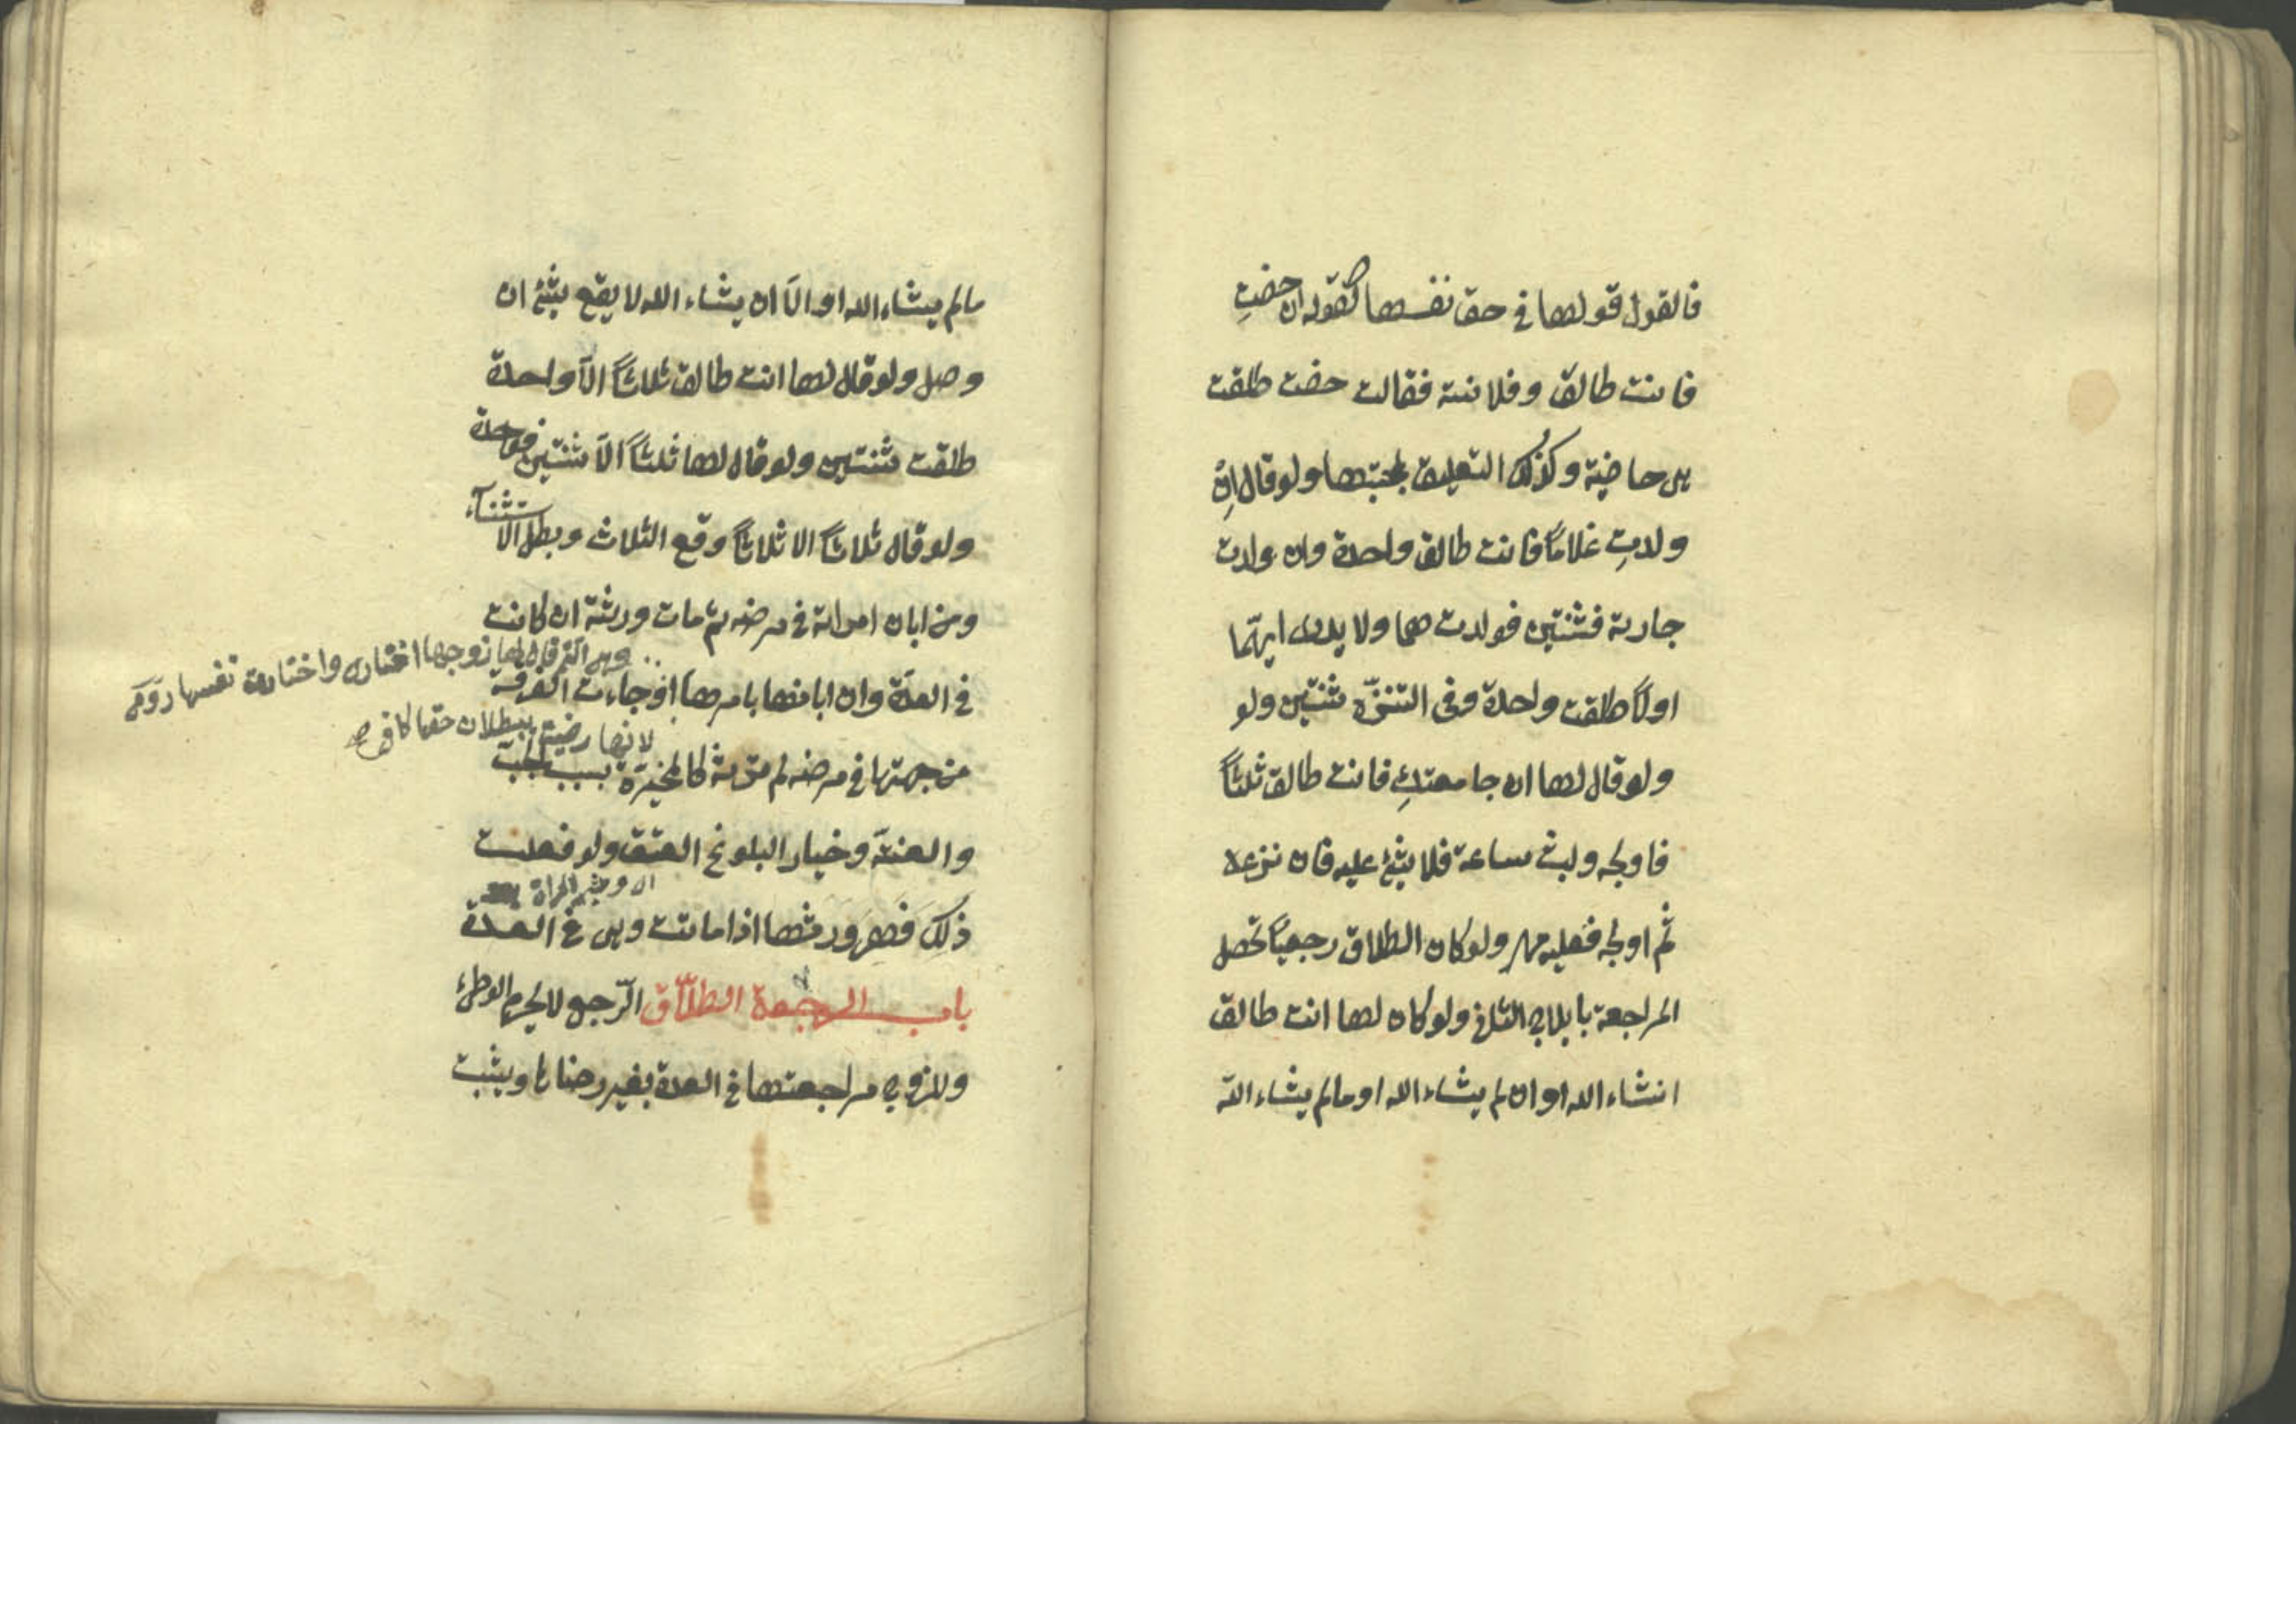 فالقول قولها في حق نفسها كقوله ان حضتِ
فانت طالق وفلانة فقالت حضت طلقت
هي خاصية وكذلك التعليق بمحبتها ولو قال إن
ولدتِ غلامًا فانت طالق واحدة وان ولدت
جارية فثنتين فولدت هما ولا يدرى ايهما
اولًا طلقت واحدة وفى التنزّه ثنتين ولو
ولو قال لها ان جامعتكِ فانت طالق ثلثًا
فاولجه ولبث ساعة فلا شئ عليه فان نزعه
ثم اولجه فعليه مهر ولو كان الطلاق رجعيًا تحصل
المراجعة بايلاج الثانى ولو كان لها انت طالق
انشاء الله او ان لم يشاء الله او مالم يشاء الله
مالم يشاء الله او الّا ان يشاء الله لا يقع شئ ان
وصل ولو قال لها انت طالق ثلاثًا الّا واحدة
طلقت ثنتين ولو قال لها ثلثًا الّا ثنتين فواحدة
ولو قال ثلاثًا الا ثلاثًا وقع الثلاث وبطل الاستثناء
ومن ابان امراته في مرضه ثم مات ورثته ان كانت
وهى التى قال لها زوجها اختارى واختارت نفسها
في العدّة وان ابانها بامرها او جاءت الفرقة
لانها رضيت ببطلان حقها كافى
من جهتها في مرضه لم ترثه كالمخيّرة بسبب الجبّ
والعنّة وخيار البلوغ العتق ولو فعلت
المراة
ذلك فَهِىَ وَرثها اذا ماتت وهى في العدة
باب الرجعة الطلاق الرّجعى لا يحرم الوطئ
وللزوج مراجعتها في العدة بغير رضاها ويثبت